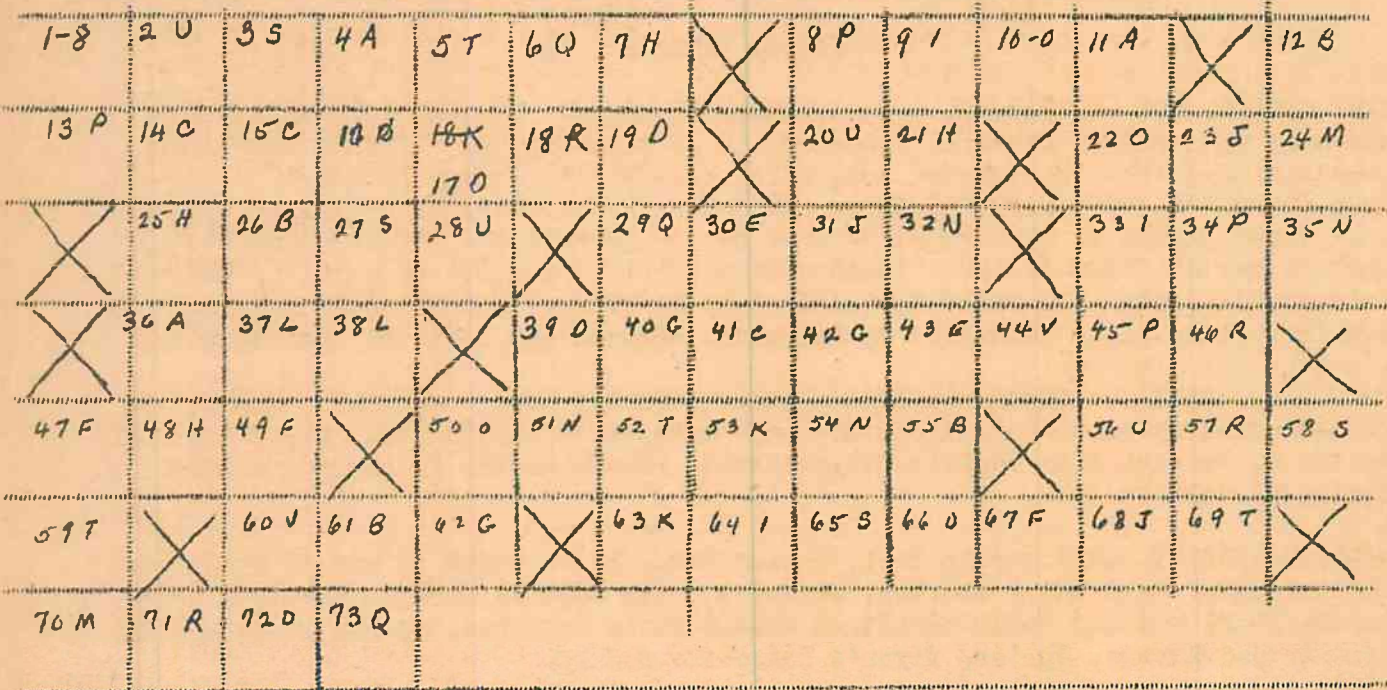 1-8 2 U 3 S 4 A 5 T 6 Q 7 H 8 P 9 I 10-0 11 A 12 B
13 P 14 C 15 C 18 K 18 R 19 D 20 U 21 H 22 O 23 J 24 M
17 O
25 H 26 B 27 S 28 U 29 Q 30 E 31 J 32 N 33 I 34 P 35 N
36 A 37 L 38 L 39 D 40 G 41 C 42 G 43 E 44 V 45 P 46 R
47 F 48 H 49 F 50 O 51 N 52 T 53 K 54 N 55 B 56 U 57 R 58 S
59 T 60 V 61 B 62 G 63 K 64 I 65 S 66 U 67 F 68 J 69 T
70 M 71 R 72 D 73 Q